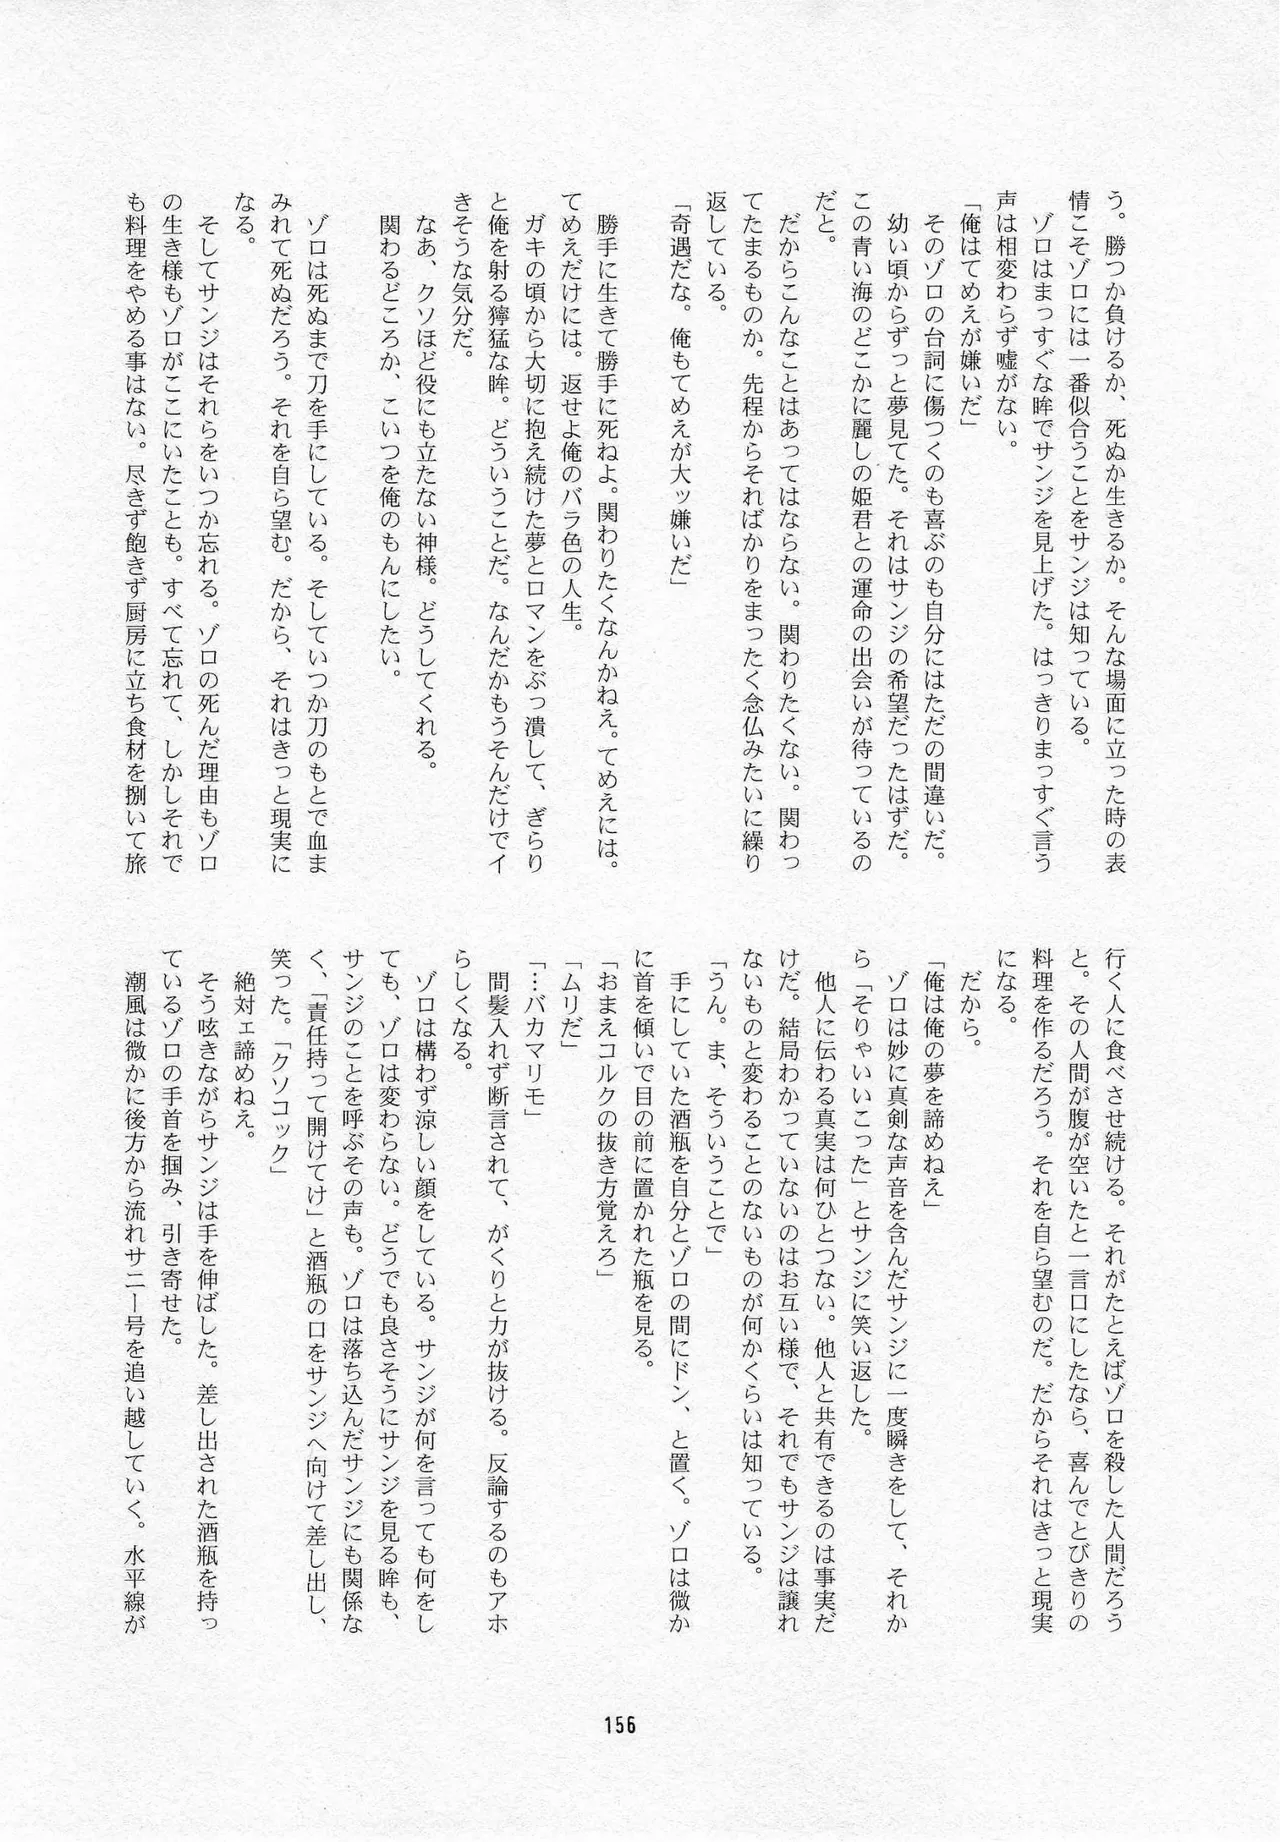 う。勝つか負けるか、死ぬか生きるか。そんな場面に立った時の表
情こそゾロには一番似合うことをサンジは知っている。
ゾロはまっすぐな眸でサンジを見上げた。はっきりまっすぐ言う
声は相変わらず嘘がない。
「俺はてめえが嫌いだ」
そのゾロの台詞に傷つくのも喜ぶのも自分にはただの間違いだ。
幼い頃からずっと夢見てた。それはサンジの希望だったはずだ。
この青い海のどこかに麗しの姫君との運命の出会いが待っているの
だと。
だからこんなことはあってはならない。関わりたくない。関わっ
てたまるものか。先程からそればかりをまったく念仏みたいに繰り
返している。
「奇遇だな。俺もてめえが大ッ嫌いだ」
勝手に生きて勝手に死ねよ。関わりたくなんかねえ。てめえには。
てめえだけには。返せよ俺のバラ色の人生。
ガキの頃から大切に抱え続けた夢とロマンをぶっ潰して、ぎらり
と俺を射る獰猛な眸。どういうことだ。なんだかもうそんだけでイ
きそうな気分だ。
なあ、クソほど役にも立たない神様。どうしてくれる。
関わるどころか、こいつを俺のもんにしたい。
ゾロは死ぬまで刀を手にしている。そしていつか刀のもとで血ま
みれて死ぬだろう。それを自ら望む。だから、それはきっと現実に
なる。
そしてサンジはそれらをいつか忘れる。ゾロの死んだ理由もゾロ
の生き様もゾロがここにいたことも。すべて忘れて、しかしそれで
も料理をやめる事はない。尽きず飽きず厨房に立ち食材を捌いて旅
行く人に食べさせ続ける。それがたとえばゾロを殺した人間だろう
と。その人間が腹が空いたと一言口にしたなら、喜んでとびきりの
料理を作るだろう。それを自ら望むのだ。だからそれはきっと現実
になる。
だから。
「俺は俺の夢を諦めねえ」
ゾロは妙に真剣な声音を含んだサンジに一度瞬きをして、それか
ら「そりゃいいこった」とサンジに笑い返した。
他人に伝わる真実は何ひとつない。他人と共有できるのは事実だ
けだ。結局わかっていないのはお互い様で、それでもサンジは譲れ
ないものと変わることのないものが何かくらいは知っている。
「うん。ま、そういうことで」
手にしていた酒瓶を自分とゾロの間にドン、と置く。ゾロは微か
に首を傾いで目の前に置かれた瓶を見る。
「おまえコルクの抜き方覚えろ」
「ムリだ」
「…バカマリモ」
間髪入れず断言されて、がくりと力が抜ける。反論するのもアホ
らしくなる。
ゾロは構わず涼しい顔をしている。サンジが何を言っても何をし
ても、ゾロは変わらない。どうでも良さそうにサンジを見る眸も、
サンジのことを呼ぶその声も。ゾロは落ち込んだサンジにも関係な
く、「責任持って開けてけ」と酒瓶の口をサンジへ向けて差し出し、
笑った。「クソコック」
絶対ェ諦めねえ。
そう呟きながらサンジは手を伸ばした。差し出された酒瓶を持っ
ているゾロの手首を掴み、引き寄せた。
潮風は微かに後方から流れサニー号を追い越していく。水平線が
156